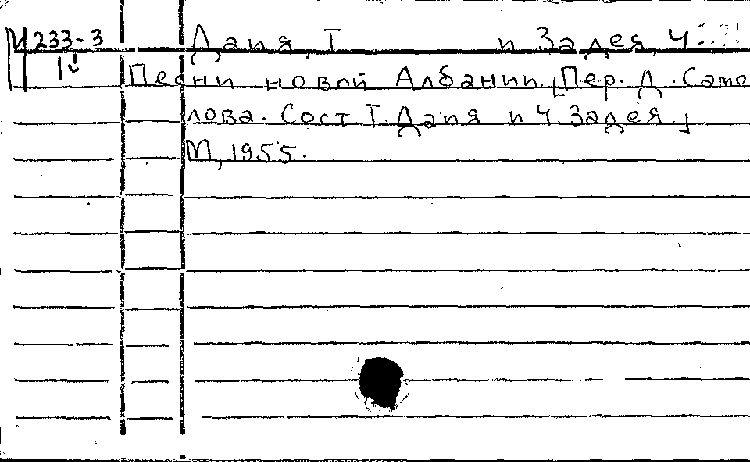 М 233-3 Дапя, Т и Задея, Ч
Песни новой Албании. [Пер. Д. Само
лова. Сост Т. Дапя и Ч Задея.]
М, 1955.